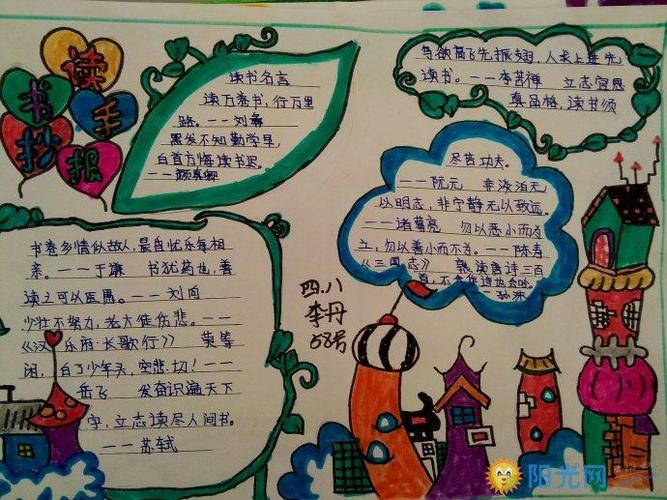 读书手抄报
读书名言
读万卷书，行万里
路。——刘彝
黑发不知勤学早，
白首方悔读书迟。
——颜真卿
鸟欲高飞先振翅，人求上进先
读书。——李苦禅 立志宜思
真品格，读书须
尽苦功夫。
——阮元 非淡泊无
以明志，非宁静无以致远。
——诸葛亮 勿以恶小而为
之，勿以善小而不为。——陈寿
《三国志》 熟读唐诗三百
首，不会作诗也会吟。
孙洙
书卷多情似故人，晨昏忧乐每相
亲。——于谦 书犹药也，善
读之可以医愚。——刘向
少壮不努力，老大徒伤悲。——
《汉乐府·长歌行》 莫等
闲，白了少年头，空悲切！——
岳飞 发奋识遍天下
字，立志读尽人间书。
——苏轼
四.八
李丹
58号
阳光网